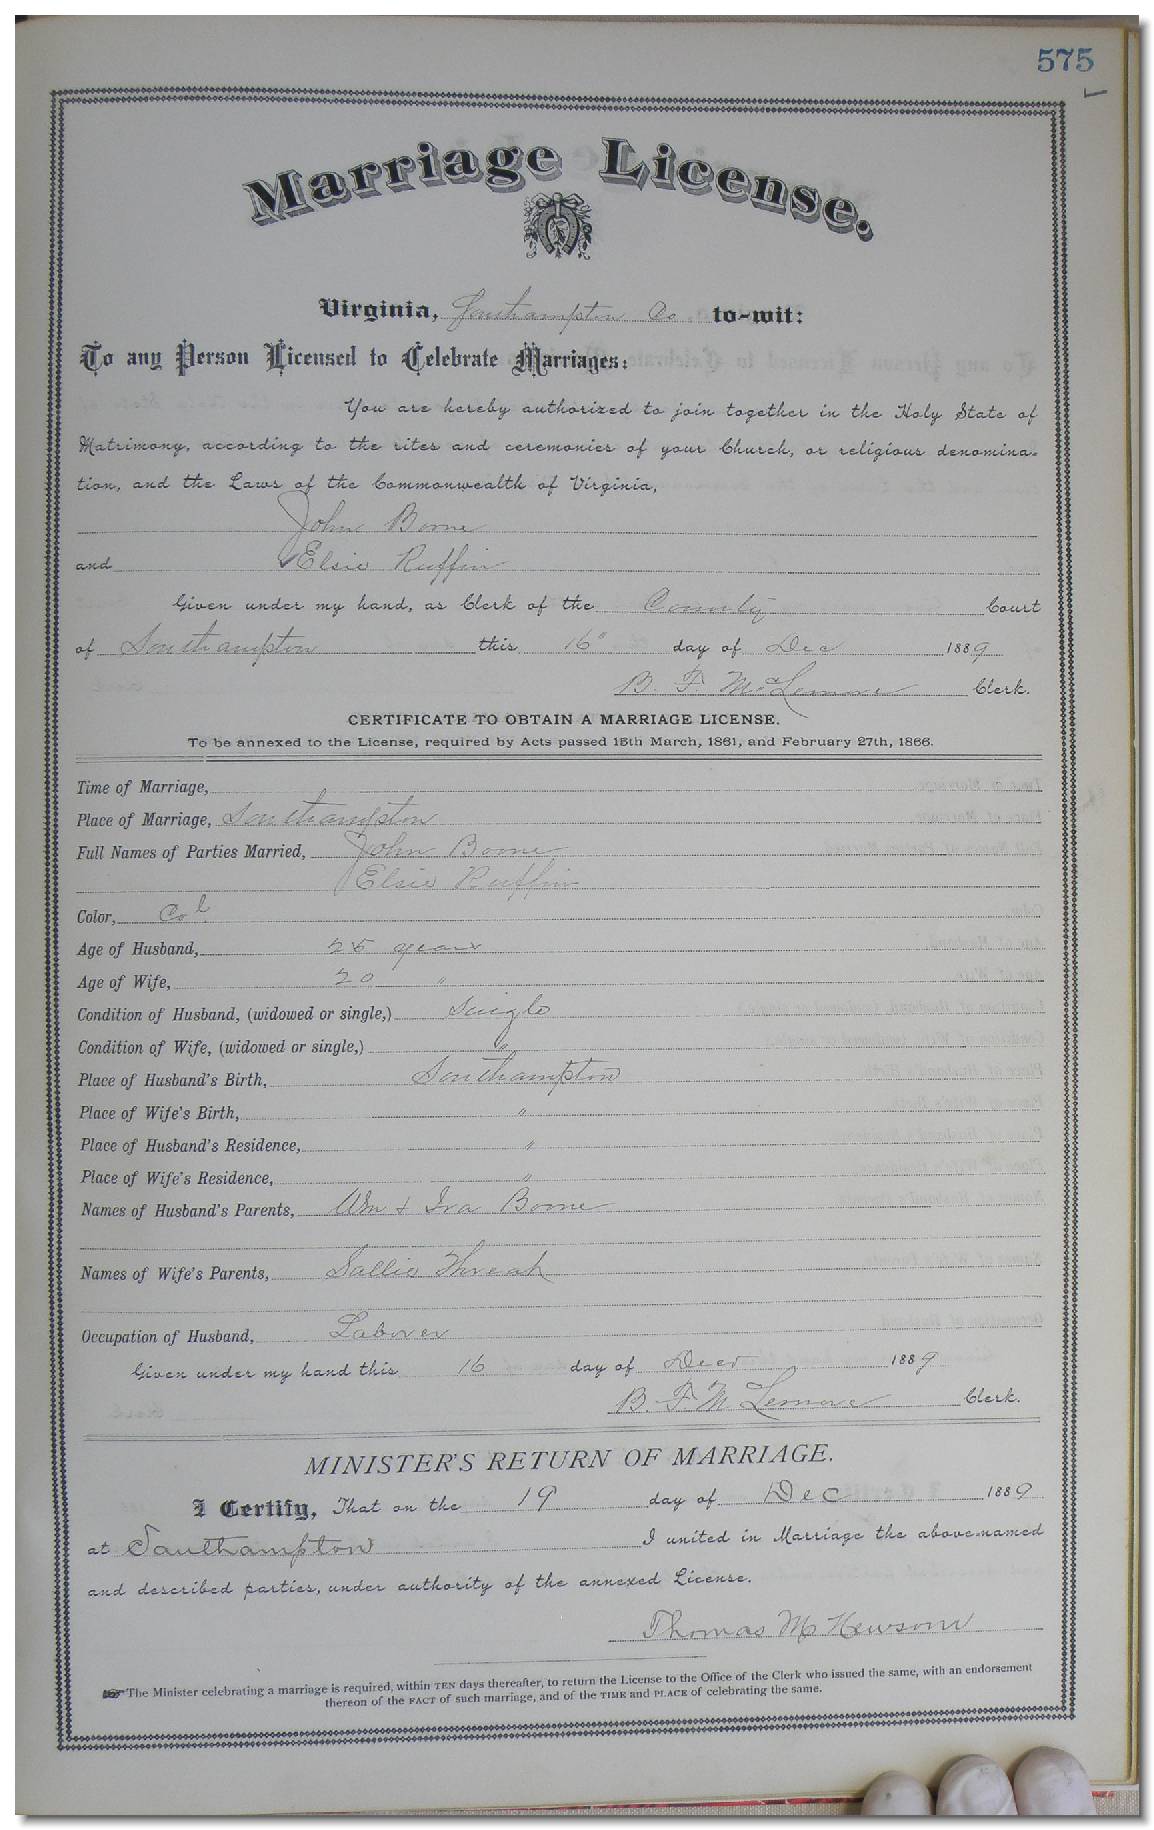 575
Marriage License.
Virginia, Southampton Co. to-wit:
To any Person Licensed to Celebrate Marriages:
You are hereby authorized to join together in the Holy State of
Matrimony, according to the rites and ceremonies of your Church, or religious denomina-
tion, and the Laws of the Commonwealth of Virginia,
John Boone
and Elsie Ruffin
Given under my hand, as Clerk of the County Court
of Southampton this 16" day of Dec 1889
B. F. McLemore Clerk.
CERTIFICATE TO OBTAIN A MARRIAGE LICENSE.
To be annexed to the License, required by Acts passed 15th March, 1861, and February 27th, 1866.
Time of Marriage,
Place of Marriage, Southampton
Full Names of Parties Married, John Boone
Elsie Ruffin
Color, Col.
Age of Husband, 25 years
Age of Wife, 20 "
Condition of Husband, (widowed or single,) Single
Condition of Wife, (widowed or single,) "
Place of Husband's Birth, Southampton
Place of Wife's Birth, "
Place of Husband's Residence, "
Place of Wife's Residence, "
Names of Husband's Parents, Wm & Ira Boone
Names of Wife's Parents, Sallie
Occupation of Husband, Laborer
Given under my hand this 16 day of Decr 1889
B. F. McLemore Clerk.
MINISTER'S RETURN OF MARRIAGE.
I Certify, That on the 19 day of Dec 1889
at Southampton I united in Marriage the above-named
and described parties, under authority of the annexed License.
Thomas M Newsom
The Minister celebrating a marriage is required, within TEN days thereafter, to return the License to the Office of the Clerk who issued the same, with an endorsement
thereon of the FACT of such marriage, and of the TIME and PLACE of celebrating the same.